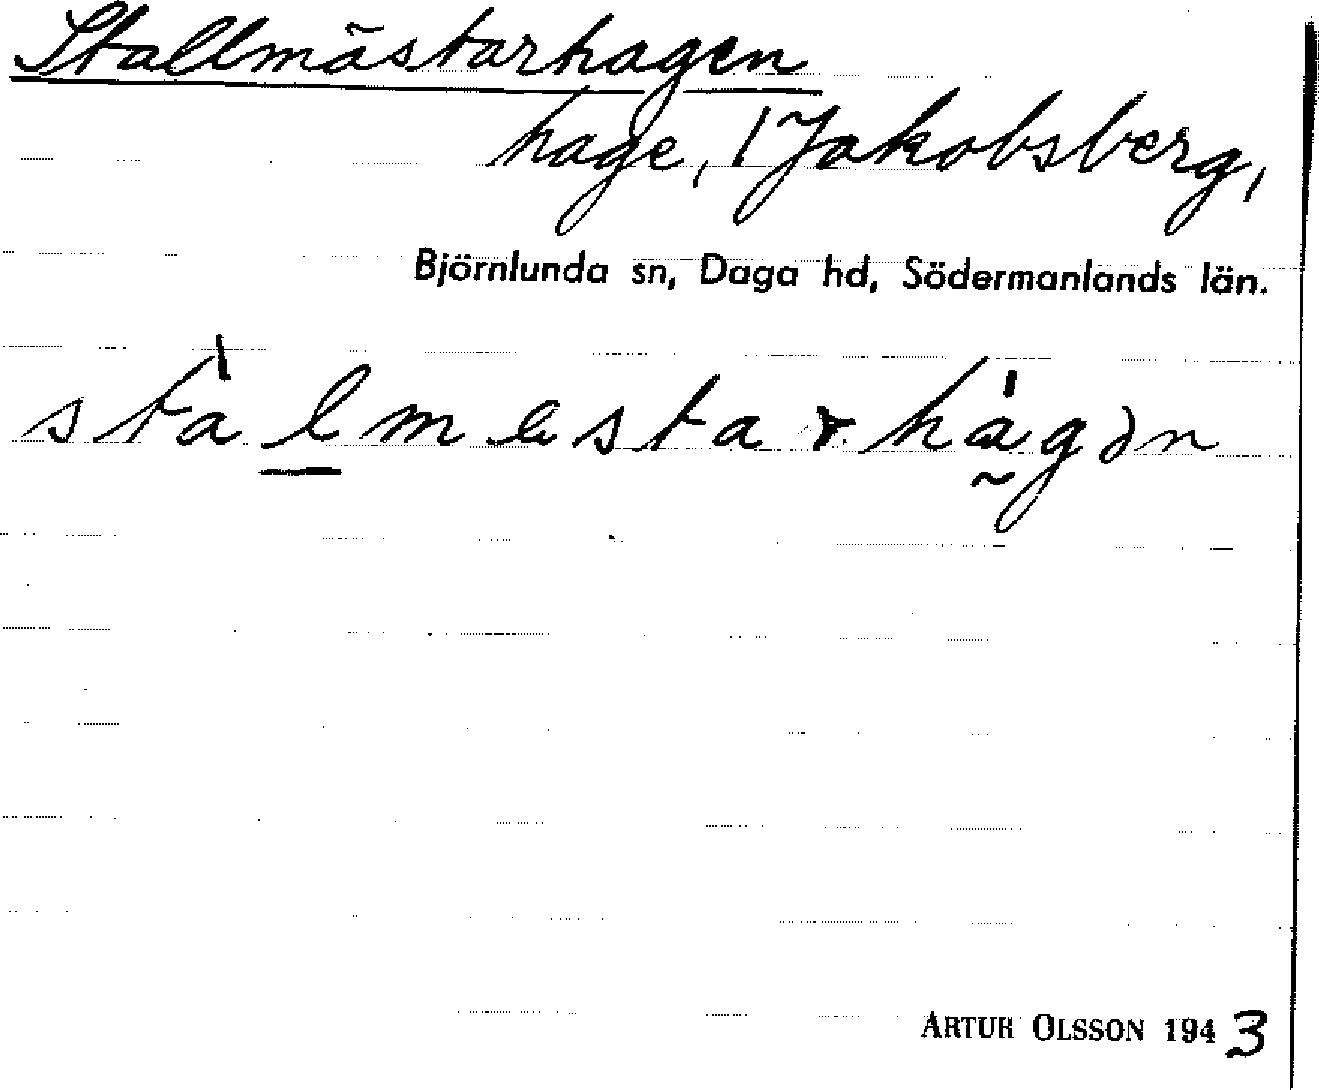 Stallmästarhagen
hage, 1 Jakobsberg,
Björnlunda sn, Daga hd, Södermanlands län.
stàl̲mästarhà̰gən
ARTUR OLSSON 1943